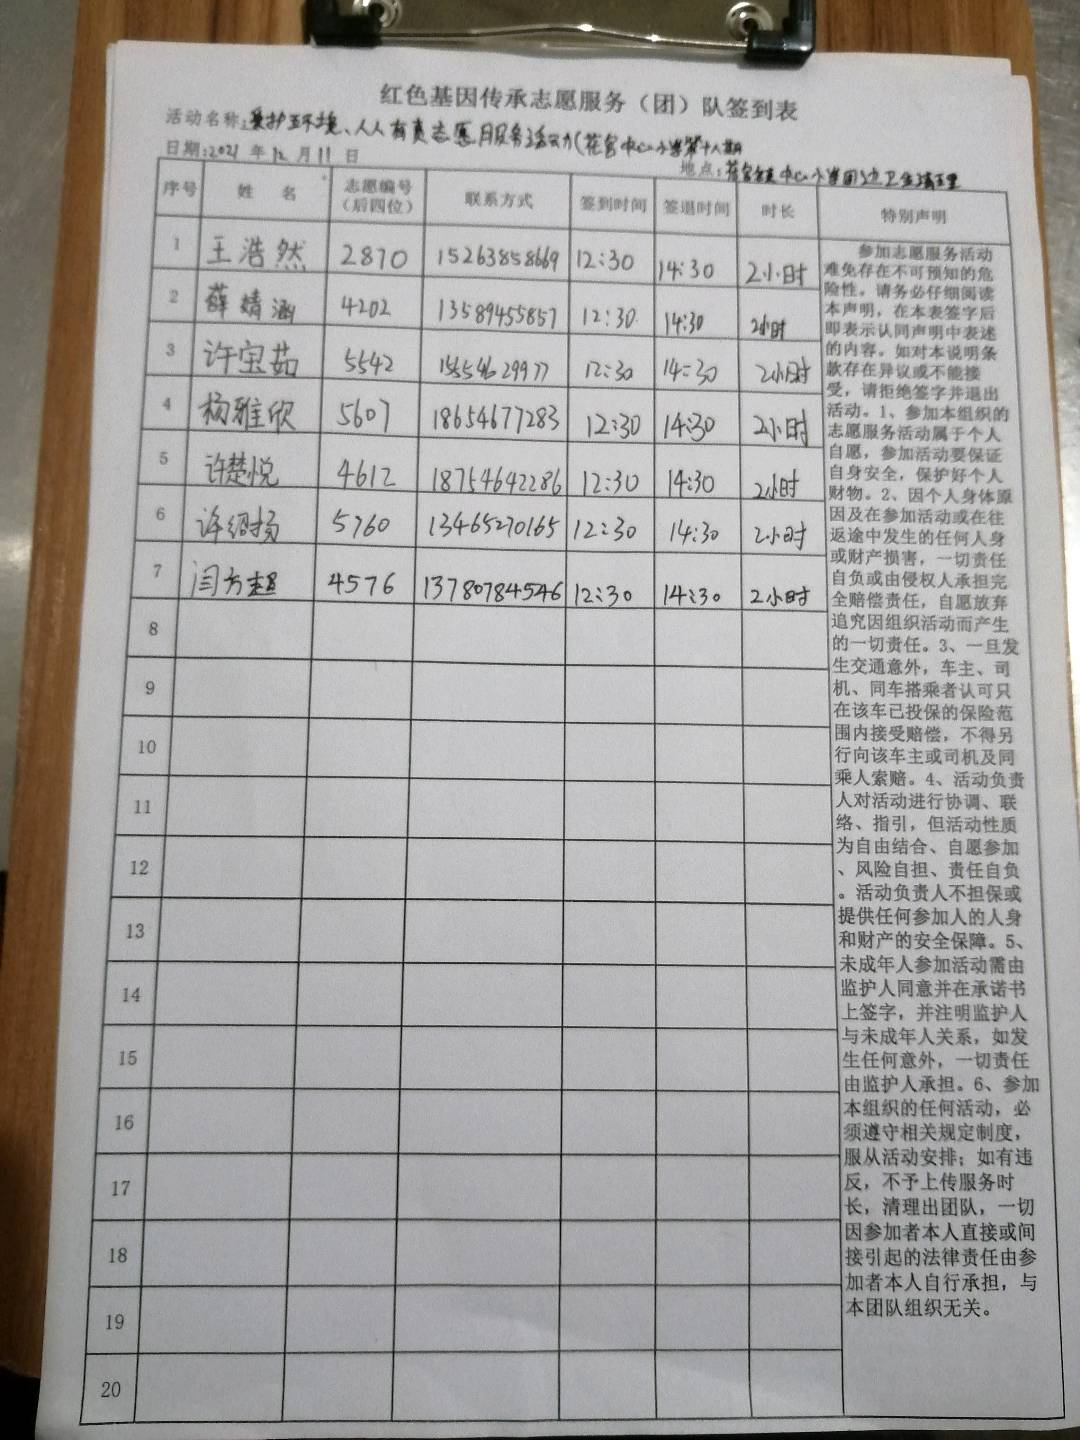 红色基因传承志愿服务（团）队签到表
活动名称:爱护环境、人人有责志愿服务活动(花官中心小学第十八期
日期:2021 年 12 月 11 日
地点:花官镇中心小学周边卫生清理
序号 姓 名 志愿编号（后四位） 联系方式 签到时间 签退时间 时长 特别声明
1 王浩然 2870 15263858669 12:30 14:30 2小时
2 薛婧涵 4202 13589455857 12:30 14:30 2小时
3 许宝茹 5542 15554629977 12:30 14:30 2小时
4 杨雅欣 5607 18654677283 12:30 14:30 2小时
5 许楚悦 4612 18754642286 12:30 14:30 2小时
6 许绍扬 5760 13465270165 12:30 14:30 2小时
7 闫方超 4576 13780784546 12:30 14:30 2小时
8
9
10
11
12
13
14
15
16
17
18
19
20
参加志愿服务活动
难免存在不可预知的危
险性。请务必仔细阅读
本声明，在本表签字后
即表示认同声明中表述
的内容。如对本说明条
款存在异议或不能接
受，请拒绝签字并退出
活动。1、参加本组织的
志愿服务活动属于个人
自愿，参加活动要保证
自身安全，保护好个人
财物。2、因个人身体原
因及在参加活动或在往
返途中发生的任何人身
或财产损害，一切责任
自负或由侵权人承担完
全赔偿责任，自愿放弃
追究因组织活动而产生
的一切责任。3、一旦发
生交通意外，车主、司
机、同车搭乘者认可只
在该车已投保的保险范
围内接受赔偿，不得另
行向该车主或司机及同
乘人索赔。4、活动负责
人对活动进行协调、联
络、指引，但活动性质
为自由结合、自愿参加
、风险自担、责任自负
。活动负责人不担保或
提供任何参加人的人身
和财产的安全保障。5、
未成年人参加活动需由
监护人同意并在承诺书
上签字，并注明监护人
与未成年人关系，如发
生任何意外，一切责任
由监护人承担。6、参加
本组织的任何活动，必
须遵守相关规定制度，
服从活动安排；如有违
反，不予上传服务时
长，清理出团队，一切
因参加者本人直接或间
接引起的法律责任由参
加者本人自行承担，与
本团队组织无关。